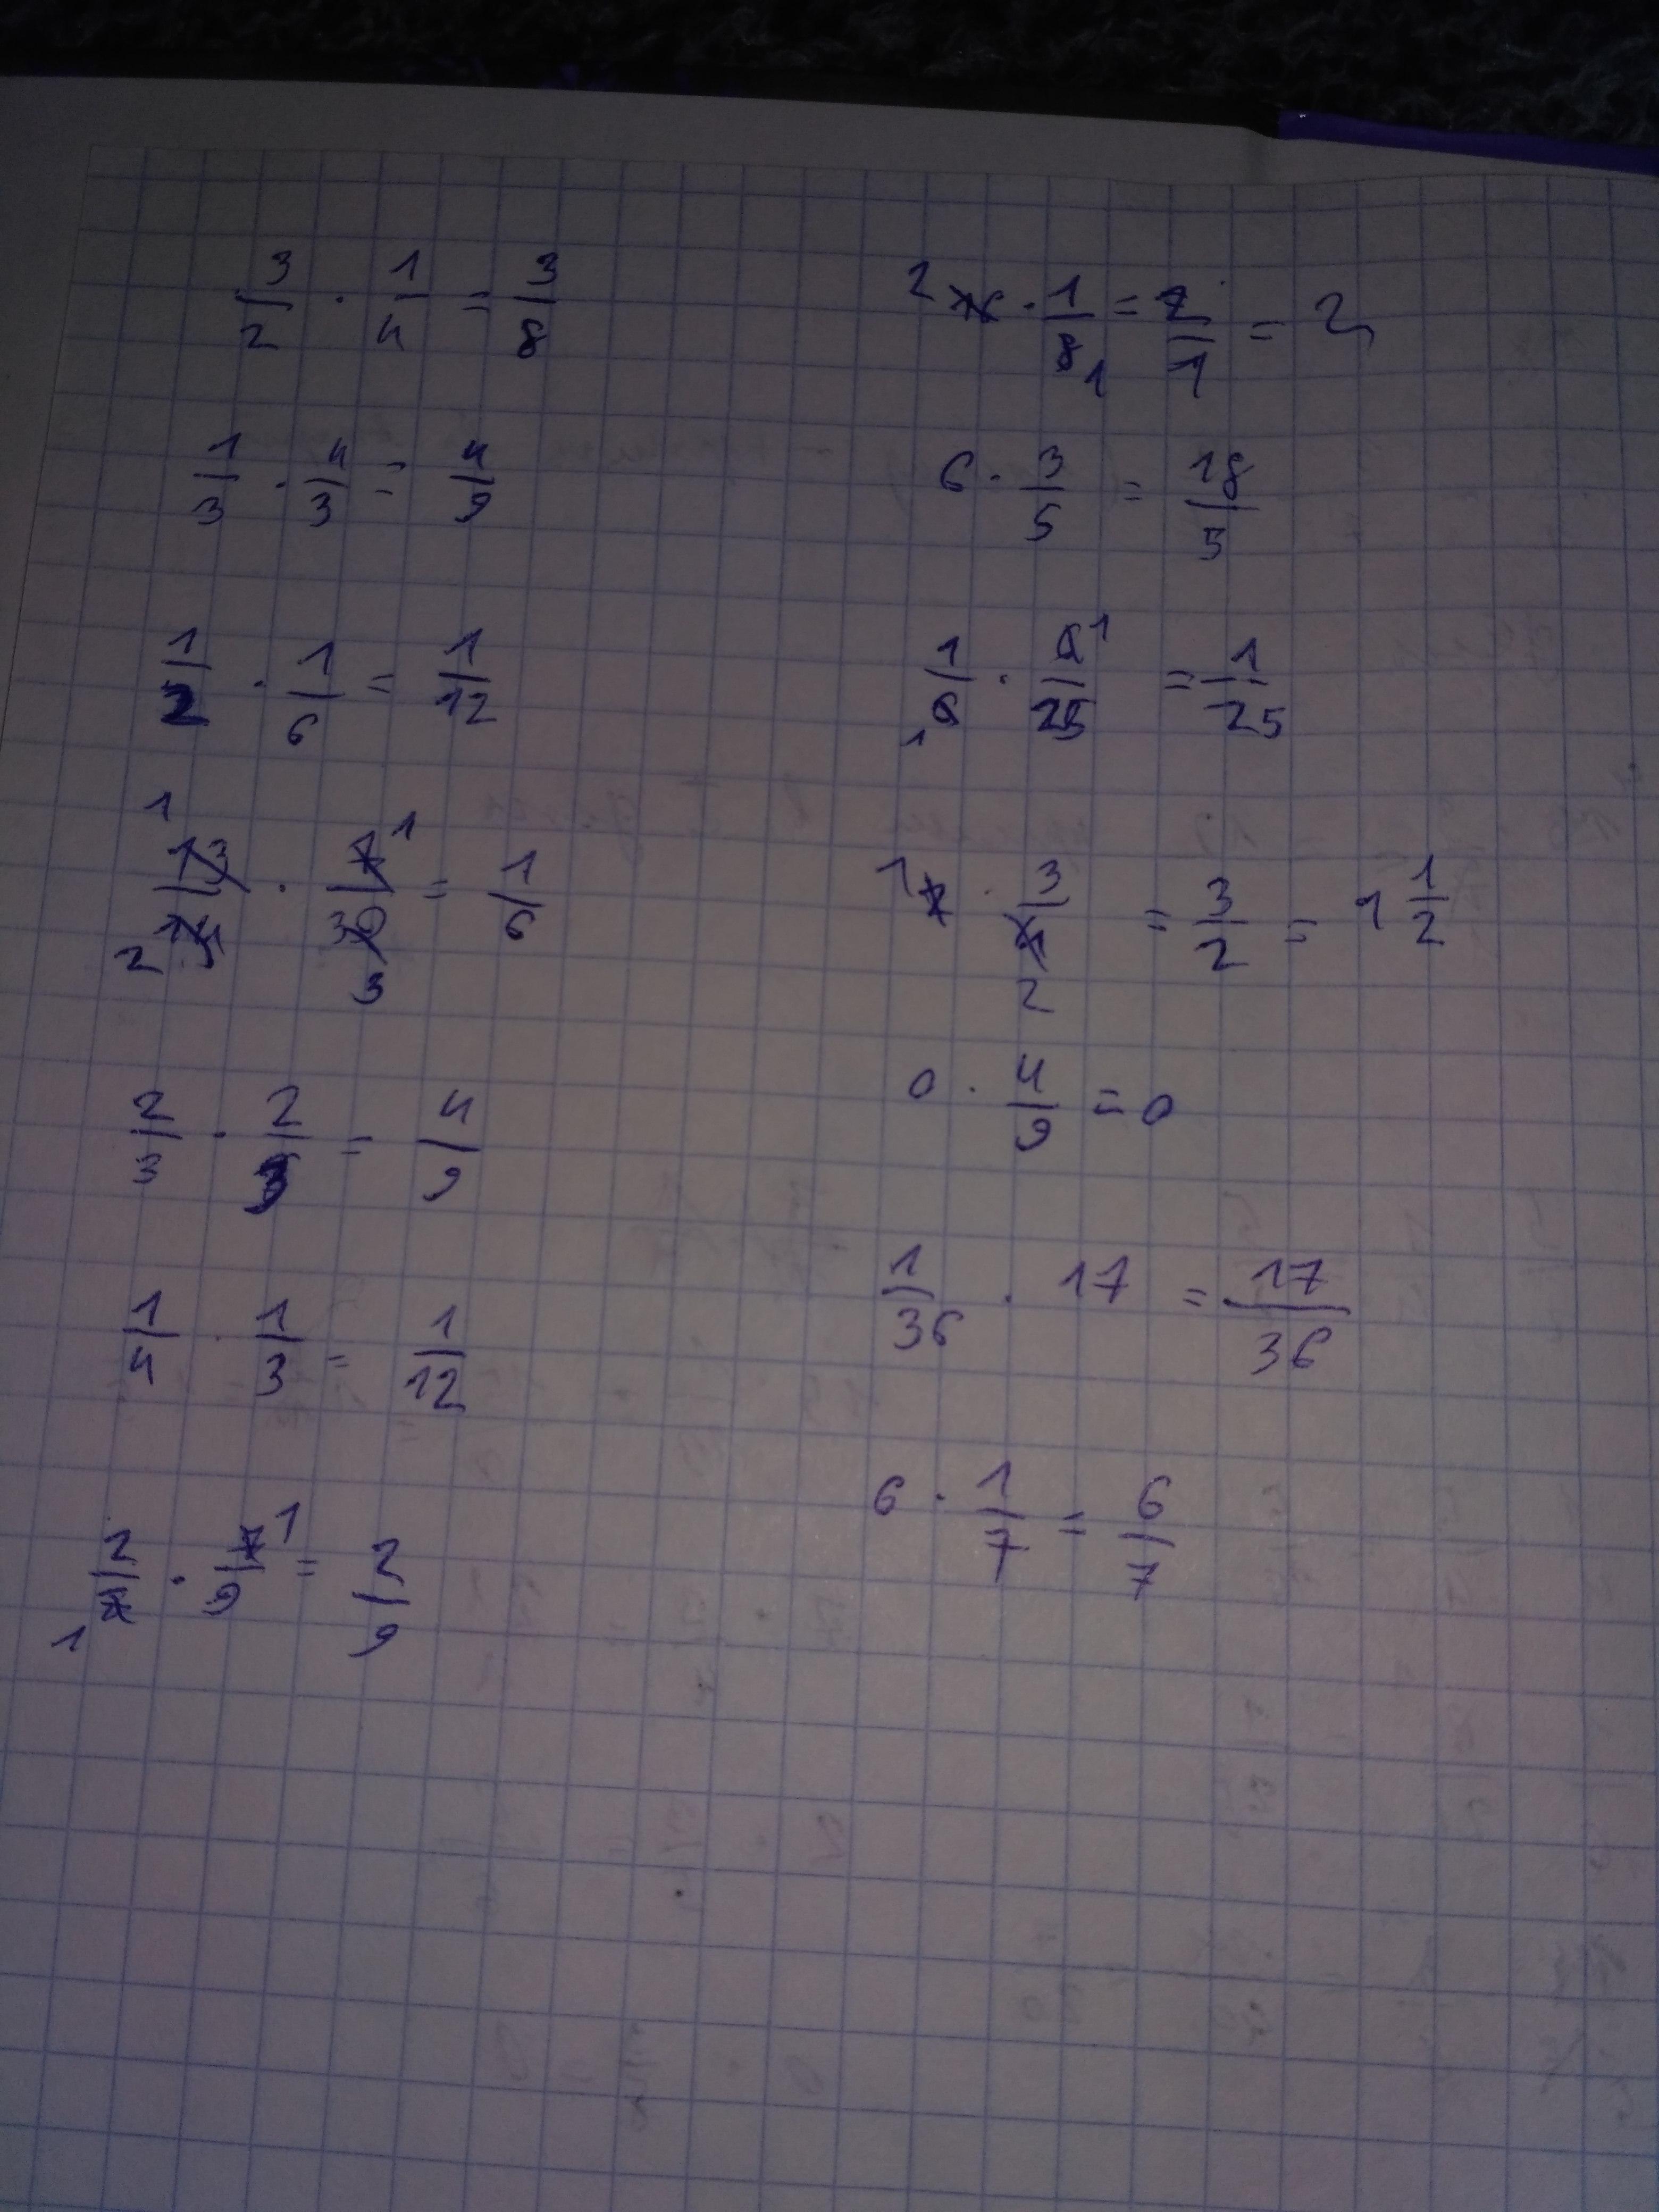 3/2 · 1/4 = 3/8
1/3 · 4/3 = 4/9
1/2 · 1/6 = 1/12
1 1
13/ · /30 = 1/6
2 3
2/3 · 2/3 = 4/9
1/4 · 1/3 = 1/12
2/7 · 7/9 1 = 2/9
1
2 16 · 1/8 1 = 2/1 = 2
6 · 3/5 = 18/5
1/6 · 6/25 1 = 1/25
1
1 2 · 3/4 = 3/2 = 1 1/2
2
0 · 4/9 = 0
1/36 · 17 = 17/36
6 · 1/7 = 6/7